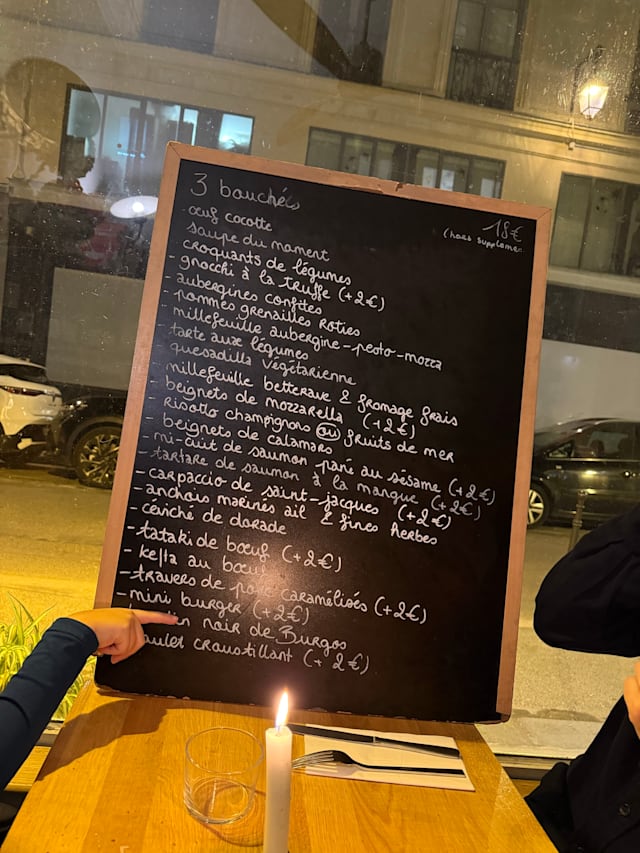 3 bouchées
18€
(hors supplément
œuf cocotte
soupe du moment
croquants de légumes
- gnocchi à la truffe (+2€)
aubergines confites
- pommes grenailles roties
- millefeuille aubergine-pesto-mozza
- tarte aux légumes
quesadilla végétarienne
- millefeuille betterave & fromage frais
- beignets de mozzarella (+2€)
- Risotto champignons ou fruits de mer
beignets de calamars
- mi-cuit de saumon pané au sésame (+2€)
- tartare de saumon à la mangue (+2€)
- carpaccio de saint-jacques (+2€)
- anchois marinés ail & fines herbes
- ceviché de dorade
- tataki de bœuf (+2€)
- kefta au bœuf
- travers de porc caramélisés (+2€)
- mini burger (+2€)
noir de Burgos
poulet croustillant (+2€)